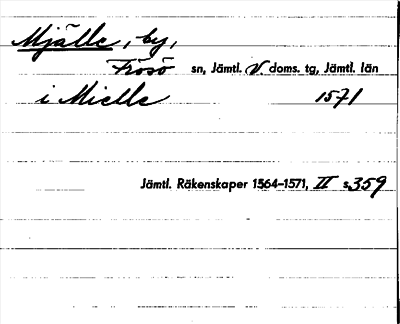 Mjälle, by,
Frösö sn, Jämtl. V. doms. tg, Jämtl. län
i Mielle 1571
Jämtl. Räkenskaper 1564-1571, II s.359